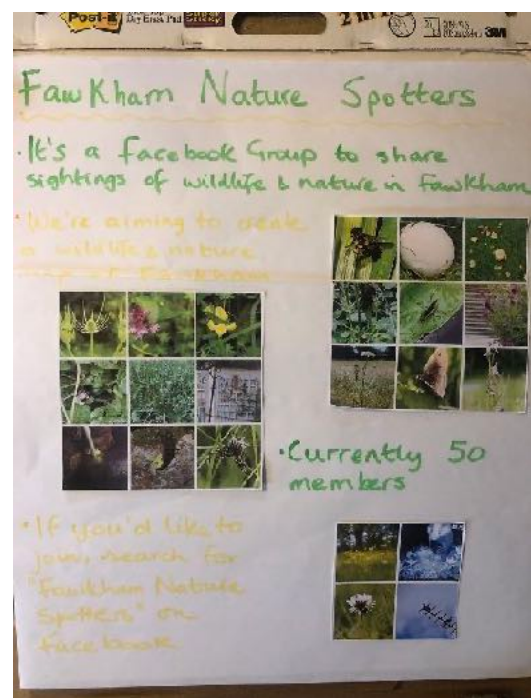 Post-it
Super
Sticky
2 in
3M
Fawkham Nature Spotters
· It's a facebook Group to share
sightings of wildlife & nature in Fawkham
· We're aiming to create
a wildlife & nature
map of Fawkham
· Currently 50
members
· If you'd like to
join, search for
"Fawkham Nature
Spotters" on
facebook